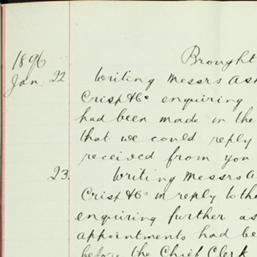 1896
Brought
Jan. 22 Writing Messrs Ash
Crisp & Co enquiring
had been made in the
that we could reply
received from you
23. Writing Messrs A
Crisp & Co in reply to the
enquiring further as
appointments had be
before the Chief Clerk